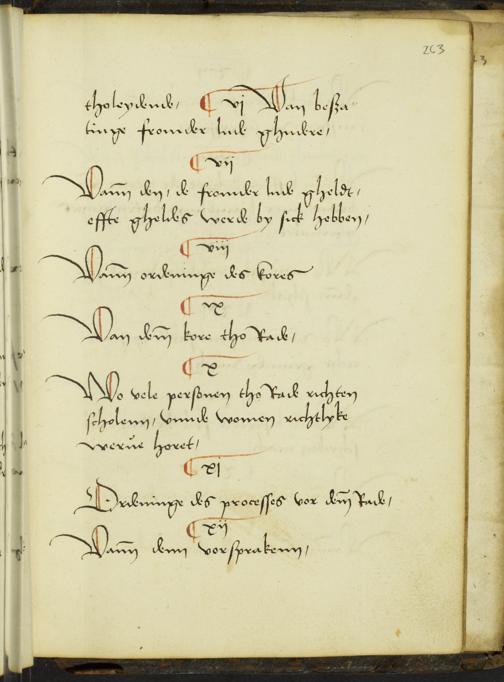 263
tholeydende, vj Van besza
tinge fromder lude ghudere,
vij
Vann den, de fromder lude gheldt,
effte gheldes werde by sick hebben,
viij
Vann ordeninge des kores
ix
Van dem kore tho Rade,
x
Wo vele personen tho Rade richten
scholenn, vnnde women richtlyke
werue horet,
xi
Ordeninge des processes vor dem Rade,
xij
Vann denn vorsprakenn,
3